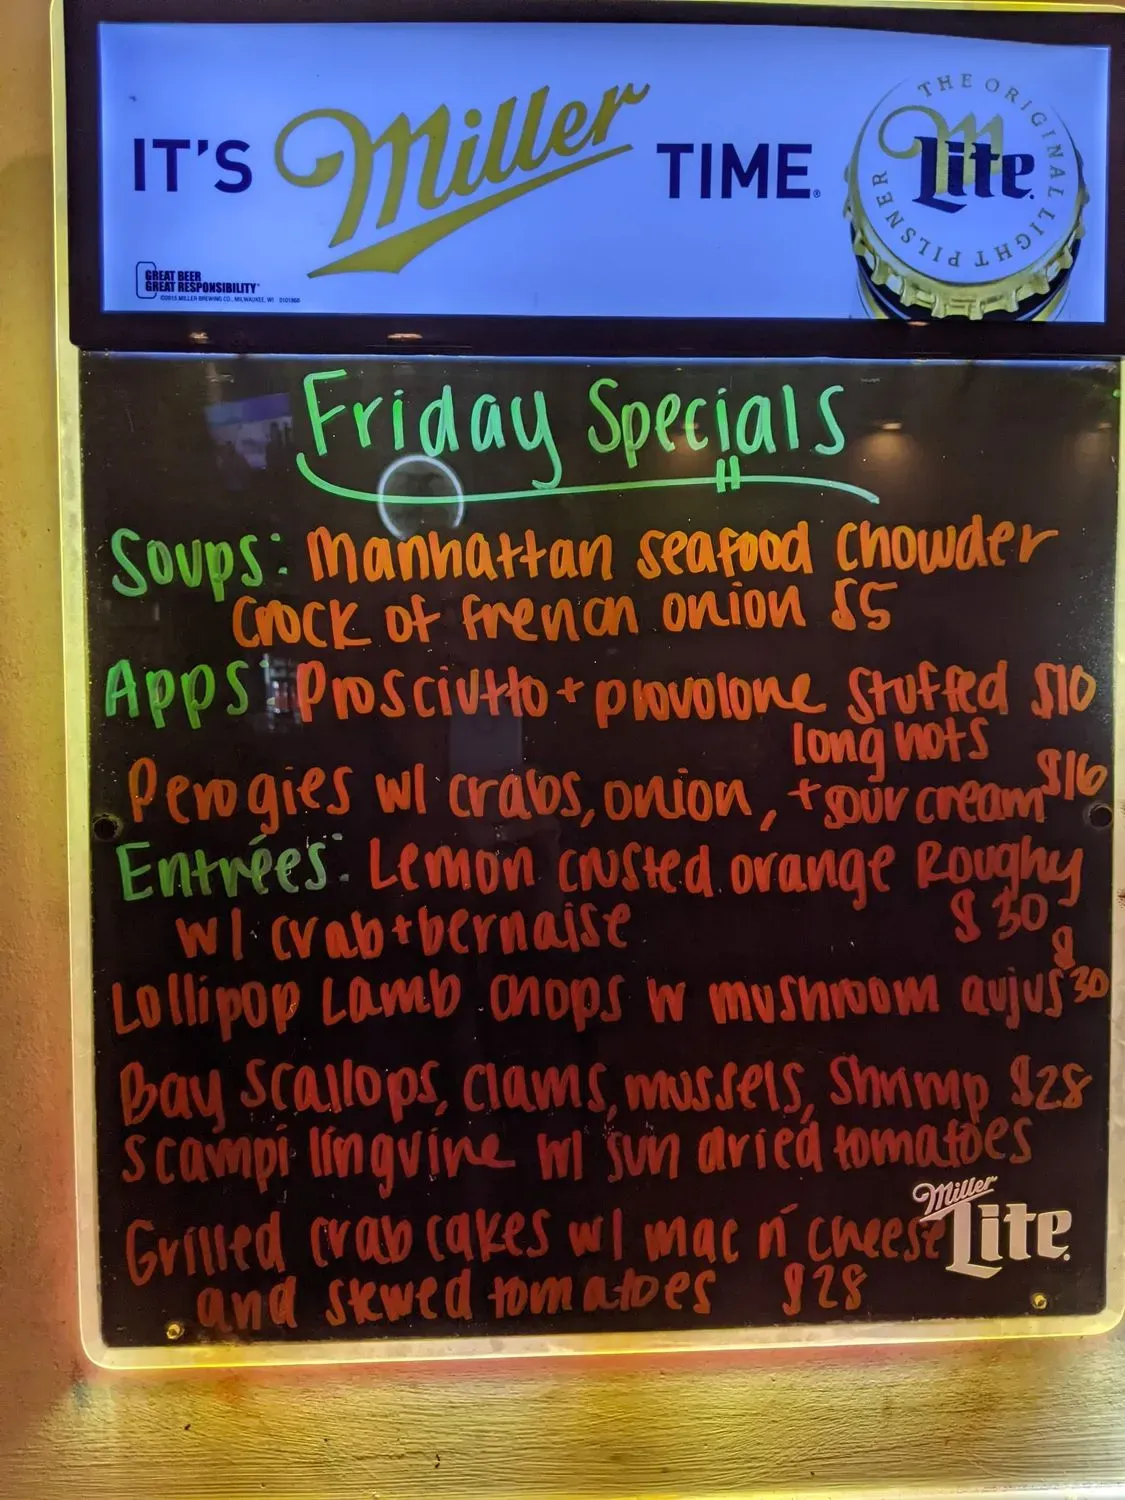 IT'S Miller TIME.
THE ORIGINAL LIGHT PILSNER
Lite
GREAT BEER
GREAT RESPONSIBILITY
©2015 MILLER BREWING CO., MILWAUKEE, WI 0101366
Friday Specials
Soups: Manhattan seafood chowder
Crock of french onion $5
Apps: Prosciutto + provolone stuffed $10
long hots
Perogies w/ crabs, onion, + sour cream $16
Entrées: Lemon crusted orange Roughy
w/ crab + bernaise $30
Lollipop Lamb chops w mushroom aujus $30
Bay scallops, clams, mussels, shrimp $28
scampi linguine w/ sun dried tomatoes
Grilled crab cakes w/ mac n' cheese
and stewed tomatoes $28
Miller
Lite